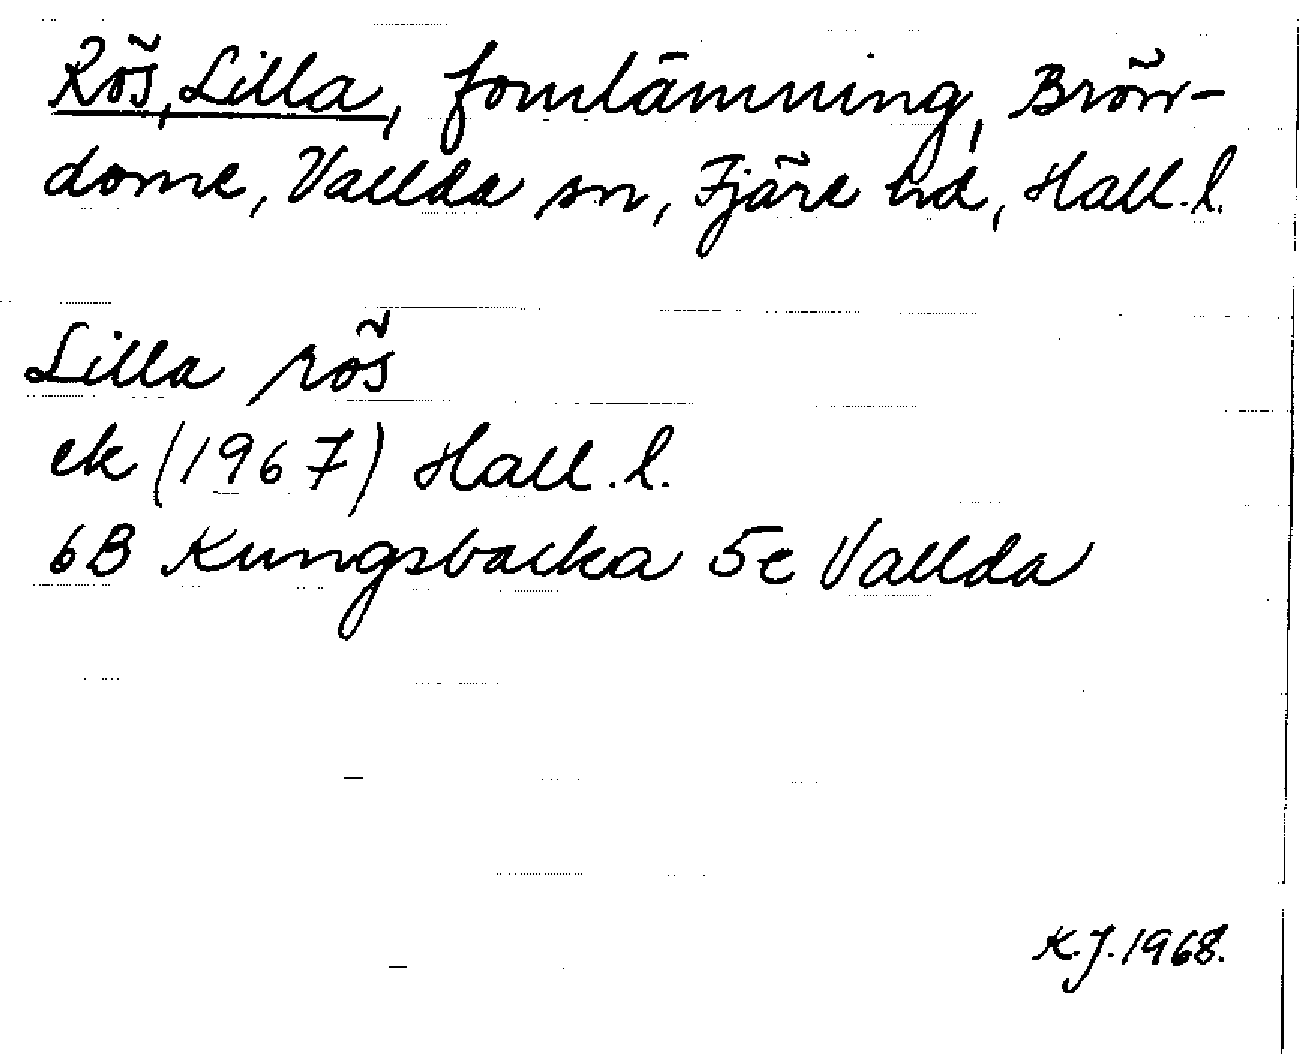 Rös, Lilla, fornlämning, Brön-
dome, Vallda sn, Fjäre hd, Hall.l.
Lilla rös
ek (1967) Hall.l.
6B Kungsbacka 5e Vallda
K.J. 1968.